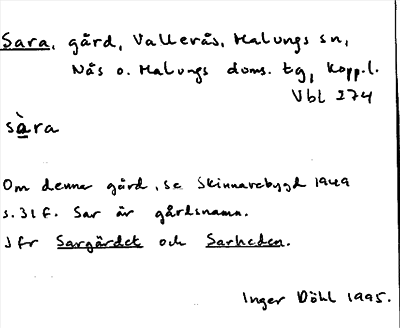 Sara, gård, Vallerås, Malungs sn,
Nås o. Malungs doms. tg, Kopp.l.
Vbl 274
sàra
Om denna gård, se Skinnarebygd 1949
s. 31 f. Sar är gårdsnamn.
Jfr Sargärdet och Sarheden.
Inger Döhl 1995.